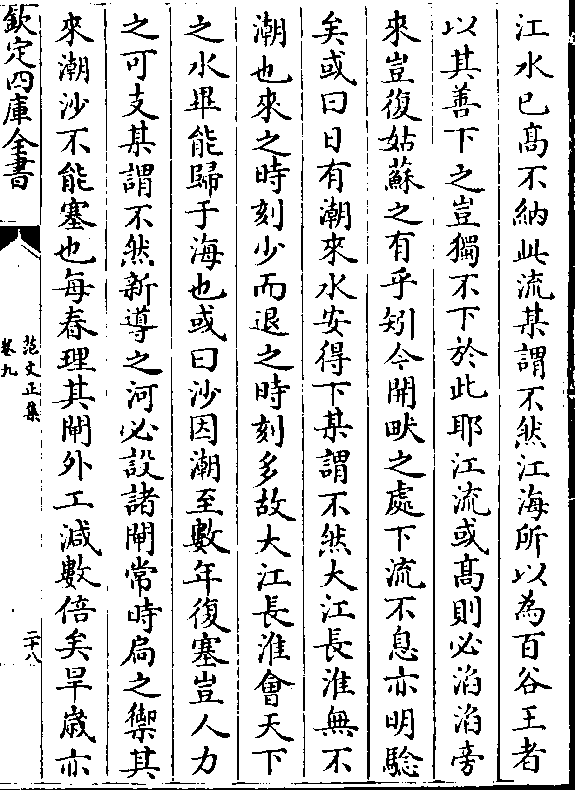 江水已髙不納此流某謂不然江海所以為百谷王者
以其善下之豈獨不下於此耶江流或髙則必滔滔旁
來豈復姑蘇之有乎矧今開畎之處下流不息亦明驗
矣或曰日有潮來水安得下某謂不然大江長淮無不
潮也來之時刻少而退之時刻多故大江長淮會天下
之水畢能歸于海也或曰沙因潮至數年復塞豈人力
之可支某謂不然新導之河必設諸閘常時扃之禦其
來潮沙不能塞也每春理其閘外工減數倍矣旱嵗亦
欽定四庫全書
范文正集
卷九
二十八